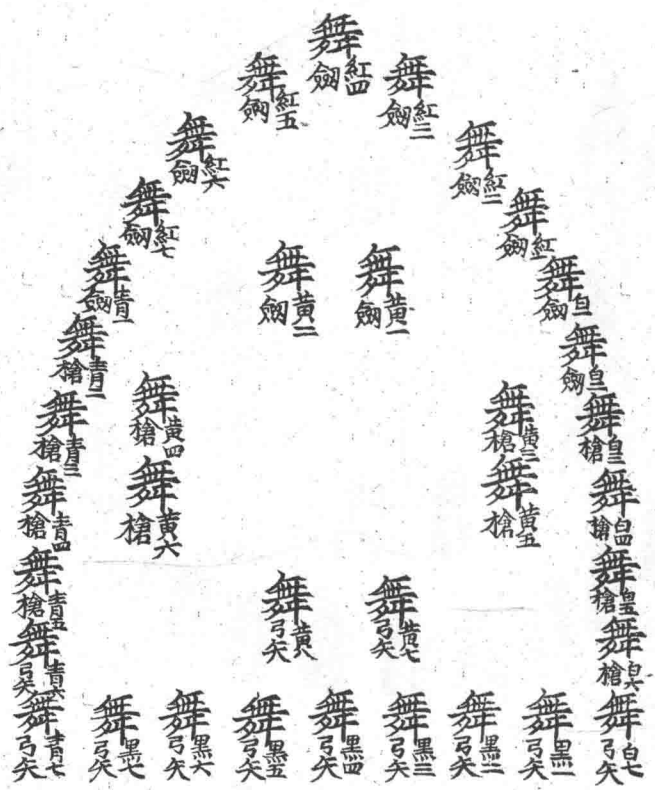 舞 劒 紅四
舞 劒 紅五
舞 劒 紅三
舞 劒 紅六
舞 劒 紅二
舞 劒 紅七
舞 劒 紅一
舞 劒 青一
舞 劒 黃二
舞 劒 黃一
舞 劒 白一
舞 槍 青二
舞 劒 白二
舞 槍 青三
舞 槍 黃四
舞 槍 黃三
舞 槍 白三
舞 槍 青四
舞 槍 黃六
舞 槍 黃五
舞 槍 白四
舞 槍 青五
舞 弓矢 黃八
舞 弓矢 黃七
舞 槍 白五
舞 弓矢 青六
舞 槍 白六
舞 弓矢 青七
舞 弓矢 黑七
舞 弓矢 黑六
舞 弓矢 黑五
舞 弓矢 黑四
舞 弓矢 黑三
舞 弓矢 黑二
舞 弓矢 黑一
舞 弓矢 白七